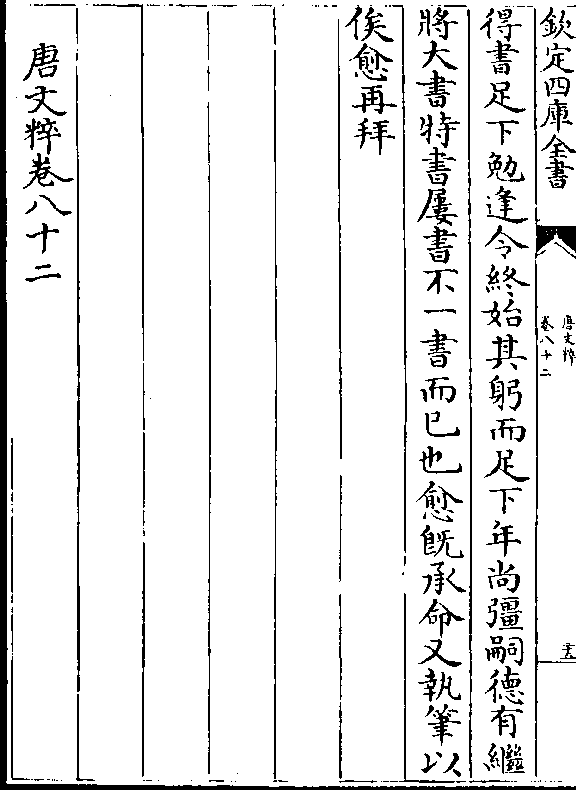 欽定四庫全書
唐文粹
卷八十二
得書足下勉逢令終始其躬而足下年尚彊嗣德有繼
將大書特書屢書不一書而已也愈既承命又執筆以
俟愈再拜
唐文粹卷八十二